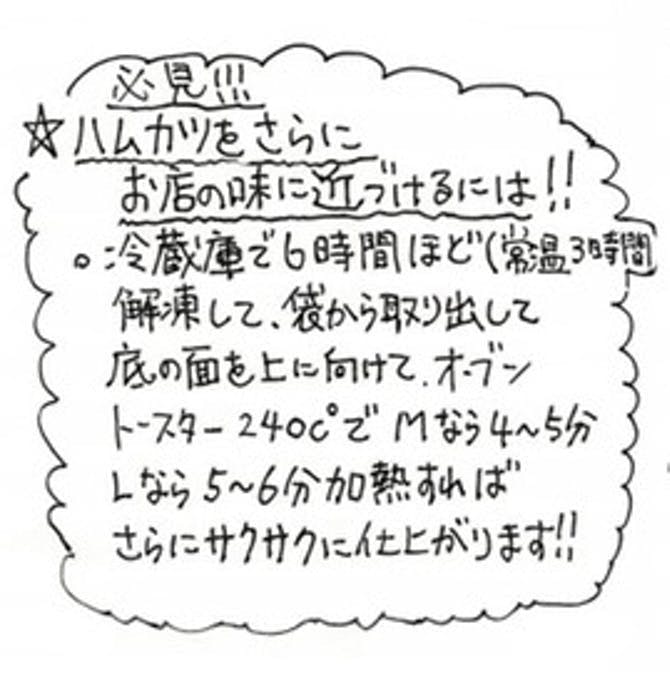 必見!!!
☆ハムカツをさらに
お店の味に近づけるには!!
。冷蔵庫で6時間ほど(常温3時間)
解凍して、袋から取り出して
底の面を上に向けて、オーブン
トースター240c°でMなら4〜5分
Lなら5〜6分加熱すれば
さらにサクサクに仕上がります!!